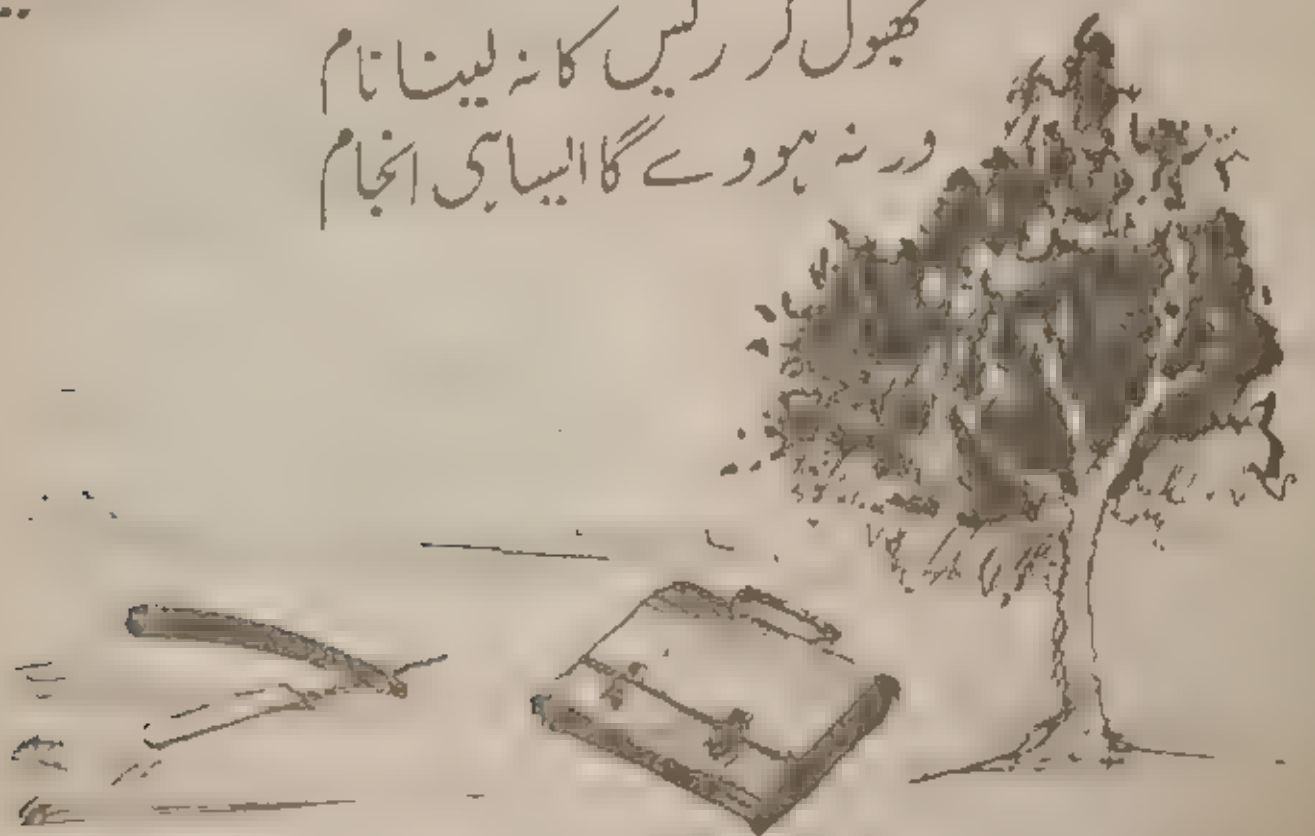 بھول کر ریس کا نہ لینا نام
ورنہ ہووے گا ایسا ہی انجام